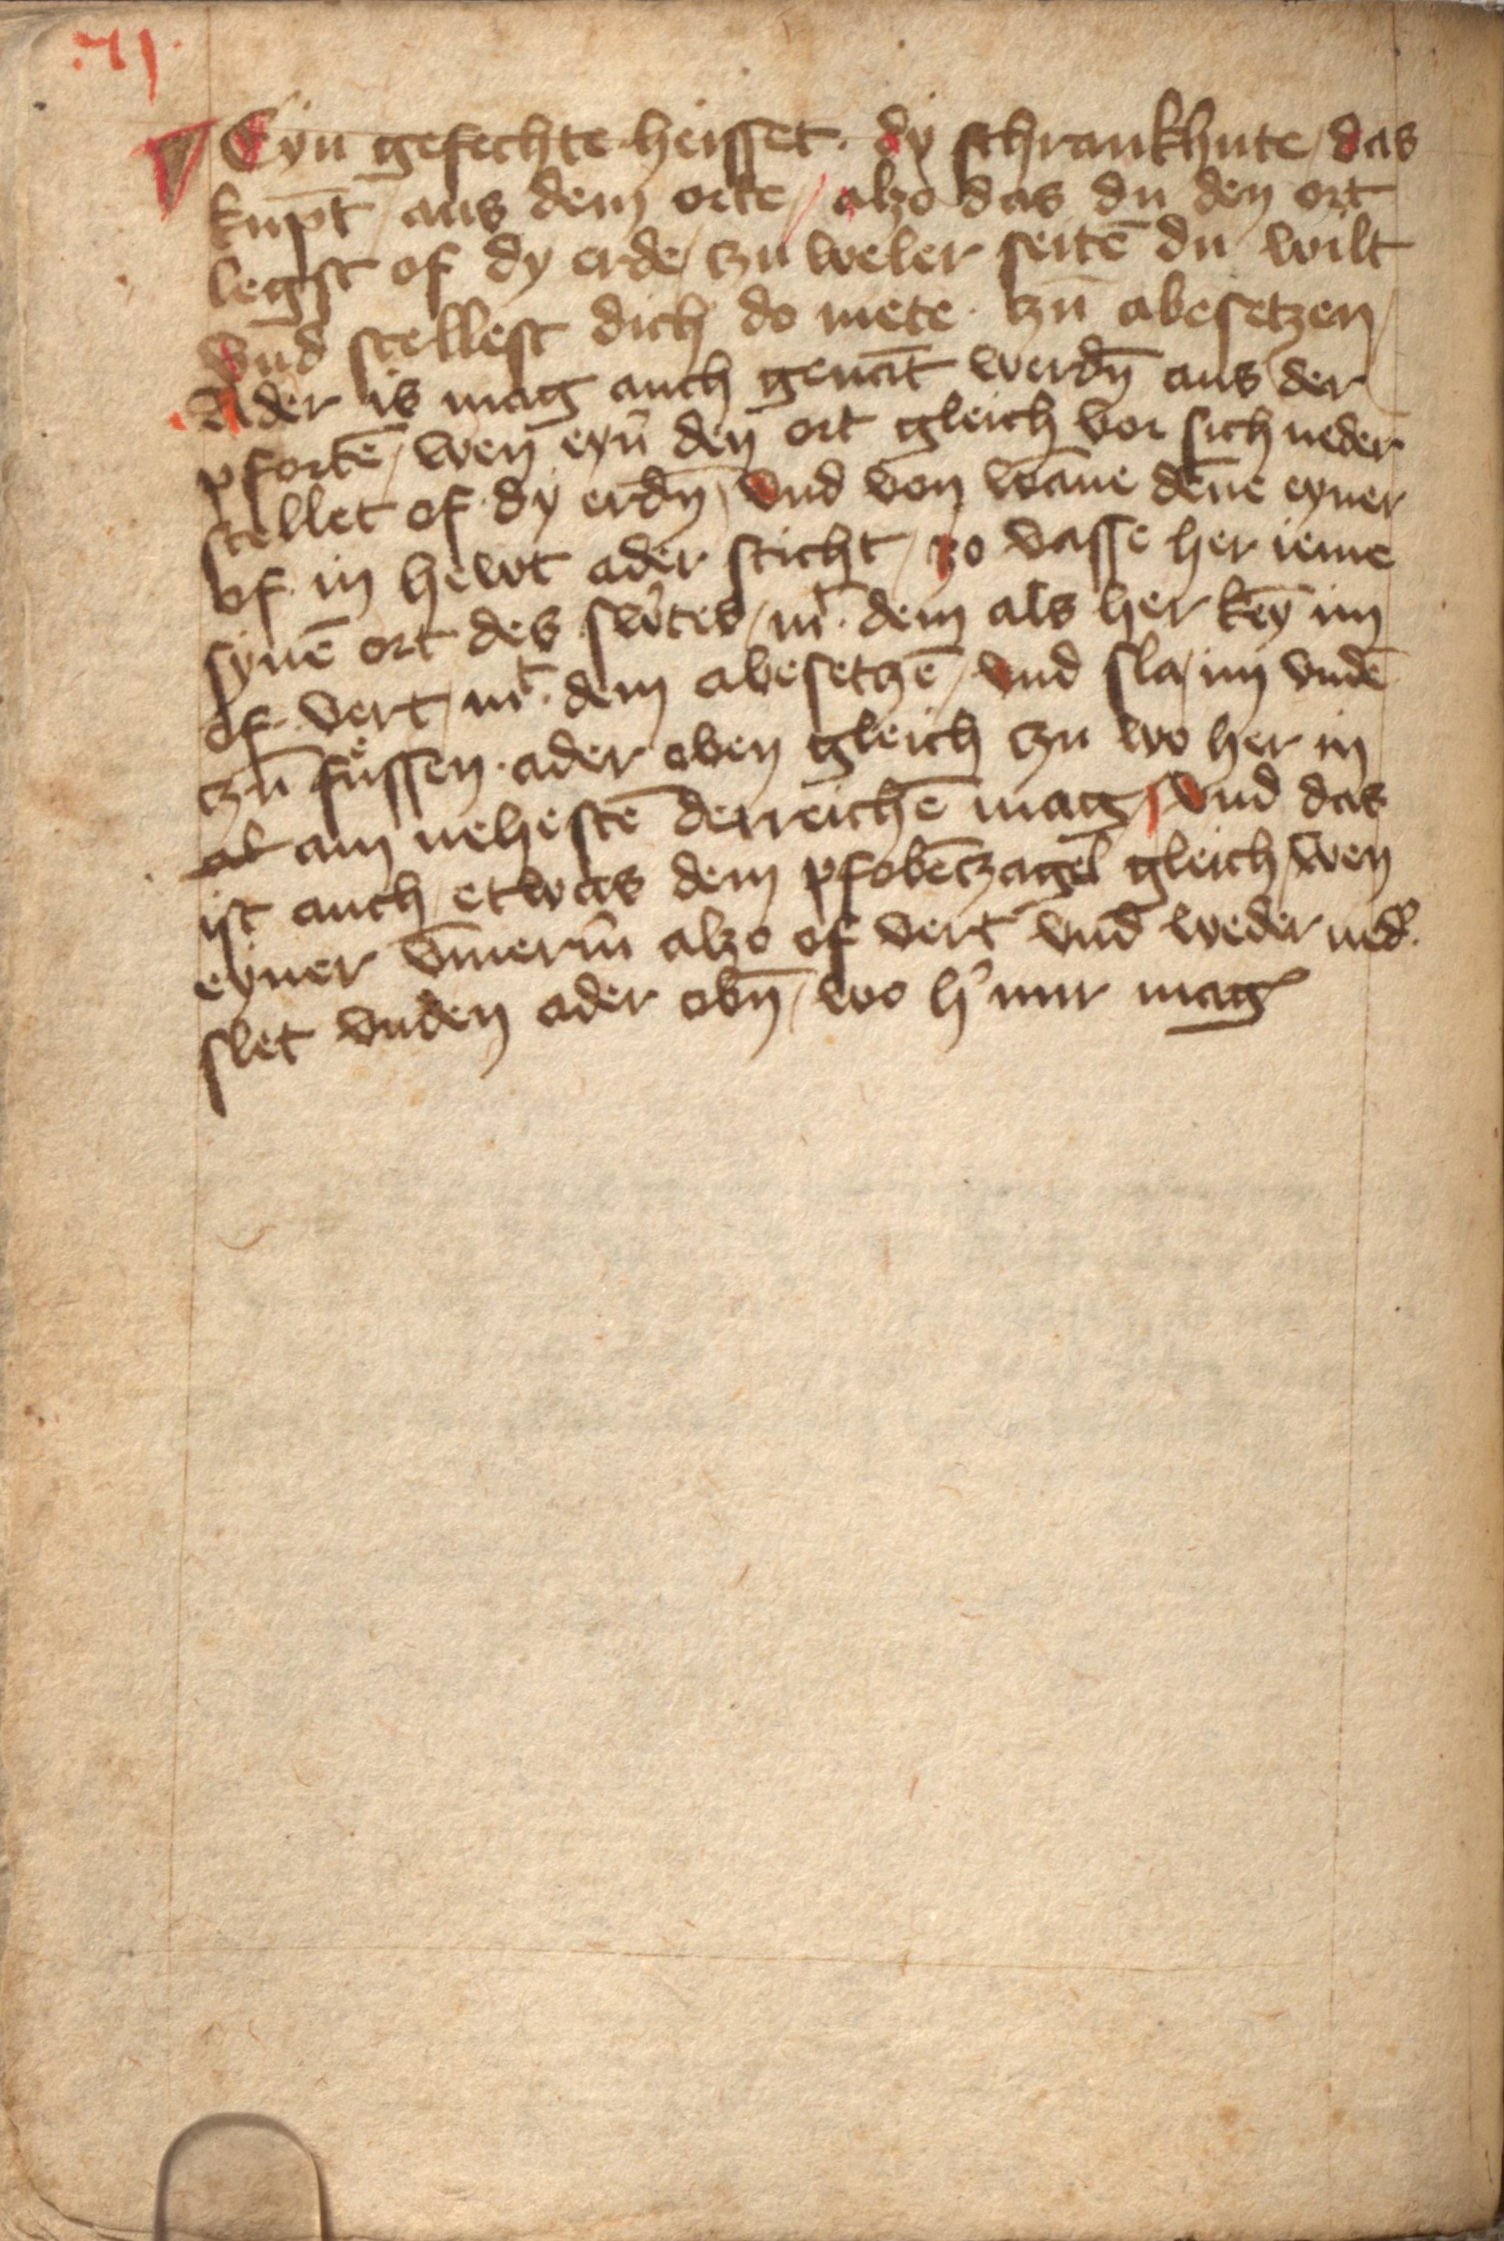 .71.
Eyn gefechte heisset · dy schrankhute / das
kupt̄ / aus dem orte / alzo das du den ort
legst of dy erde / czu weler seitē du wilt
vnd stellest dich do mete · czū abesetzen /
Ader is mag auch genāt werdn̄ aus der
pfortē / wen eyn̄ den ort gleich vor sich neder
stellet of dy erdn̄ / vnd von wāne dēne eyner
of in hewt ader sticht / zo vasse her ieme
synē ort des sw̓tes / mͭ · dem als her keȳ im
of vert / mͭ · dem abesetczē / vnd sla / im vndē
czū fuͤssen · ader oben gleich czu wo her in
am nehestē derreichē mag / vnd das
ist auch / etwas dem pfobēczagel gleich / wen
eyner v̄merm̄ alzo of vert vnd weder ned̓ ·
slet vnden ader obn̄ / wo h̓ nur mag